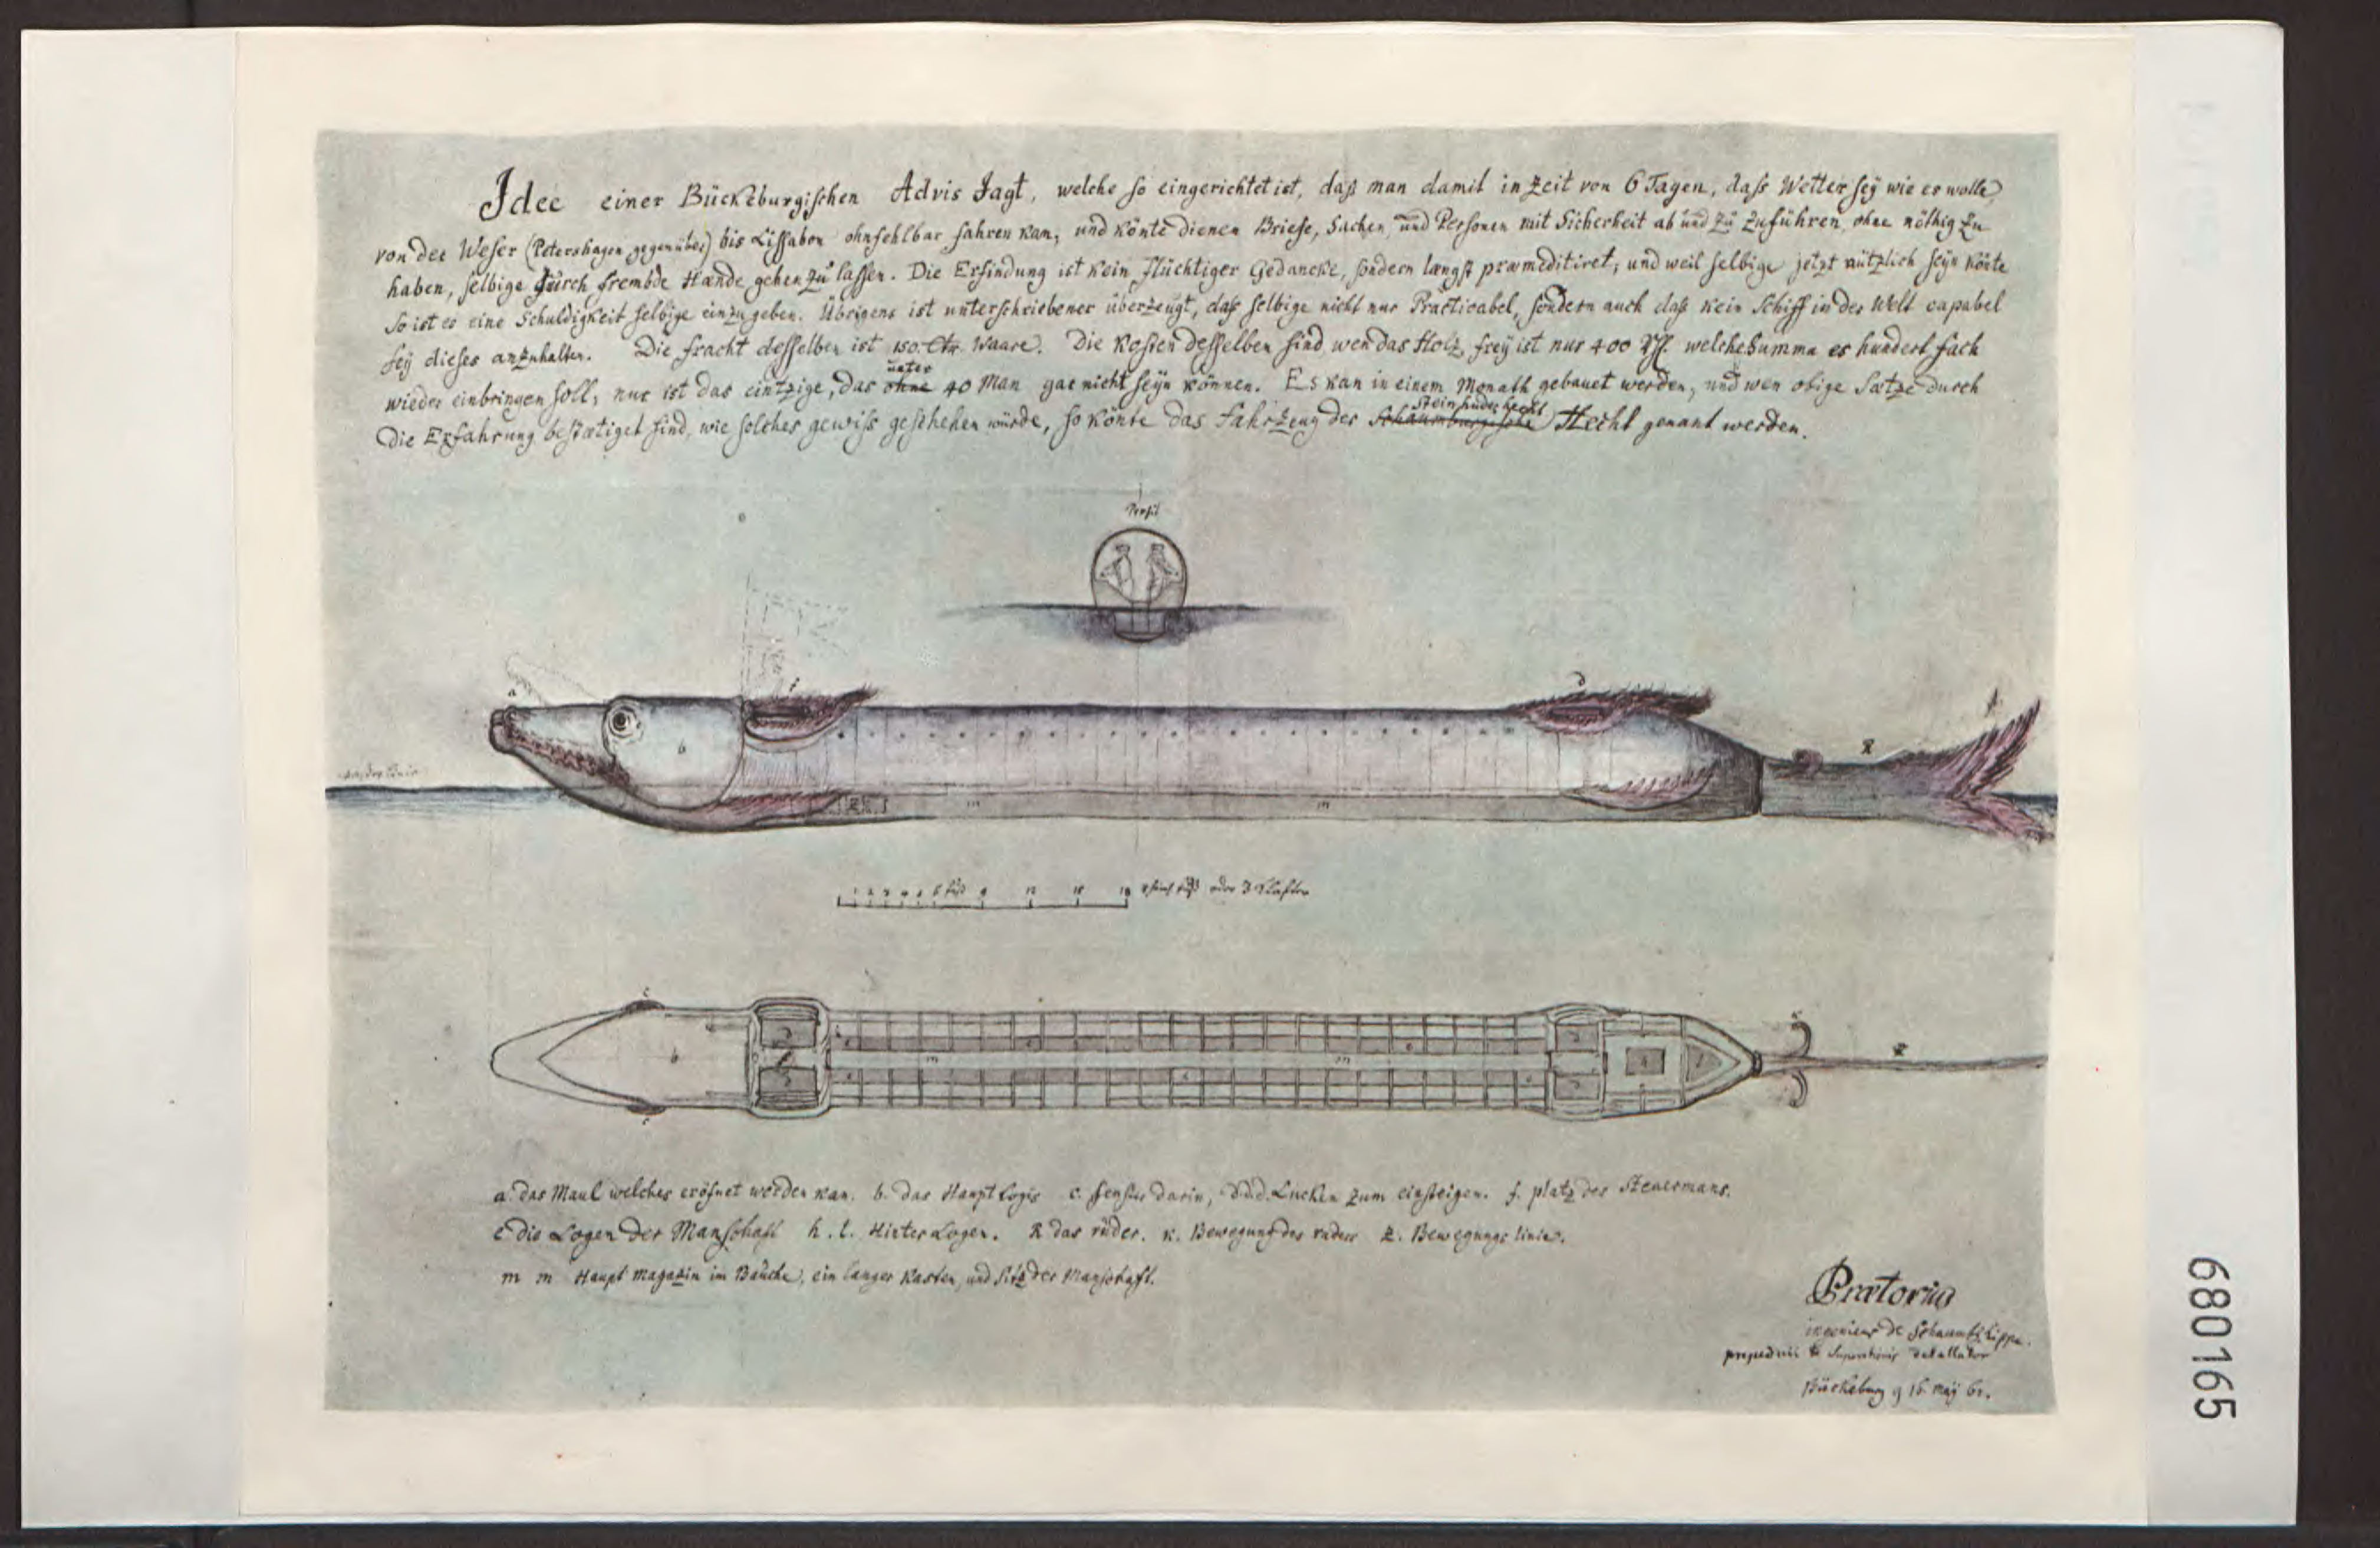 Idee einer Bückeburgischen Advis Jagt, welche so eingerichtet ist, daß man damit in Zeit von 6 Tagen, daß Wetter sey wie es wolle
von der Weser (Petershagen gegenüber) bis Lissabon ohnfehlbar fahren kan, und könte dienen Briefe, Sachen, und Personen mit Sicherheit ab und zu zuführen, ohne nöthig zu
haben, selbige durch frembde Hænde gehen zu lassen. Die Erfindung ist kein flüchtiger Gedancke, sondern længst præmeditiret, und weil selbige jetzt nützlich seyn könte
so ist es eine Schuldigkeit selbige einzugeben. Übrigens ist unterschriebener überzeugt, daß selbige nicht nur Practicabel, sondern auch daß kein Schiff in der Welt capabel
sey dieses anzuhalten. Die fracht desselben ist 150. Ctr. Waare. Die Kosten desselben sind wen das Holz frey ist nur 400 welche Summa es hundert fach
wieder einbringen soll, nur ist das eintzige, das ohne unter 40 Man gar nicht seyn können. Es kan in einem Monath gebauet werden, und wen obige Sætze durch
Die Erfahrung bestætiget sind, wie solches gewiss geschehen würde, so könte das Fahrzeug der Schaumburgische Steinhuder Hecht genant werden.
Profil
a
f
d
b
R
Wasser Linie
m m
6 fuß 9 12 15 18 fuß oder 3 Klafter
c
b m m
c
a. das Maul welches eröfnet werden kan. b. das Haupt Logis c. fenster darin, d.d.d. Lucken zum einsteigen. f. platz des Steuermans.
e die Logen der Manschaft h. l. Hinter Logen. R das rüder. k. Bewegung des ruders z. Bewegungs linie.
m m Haupt magazin im Bauche, ein langer Kasten, und Sitz der Manschaft.
Prætorius
ingenieur de Schaumb. Lippe.
Bückeburg 16. may 62.
680165